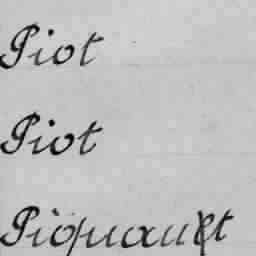 Piot
Piot
Piquault